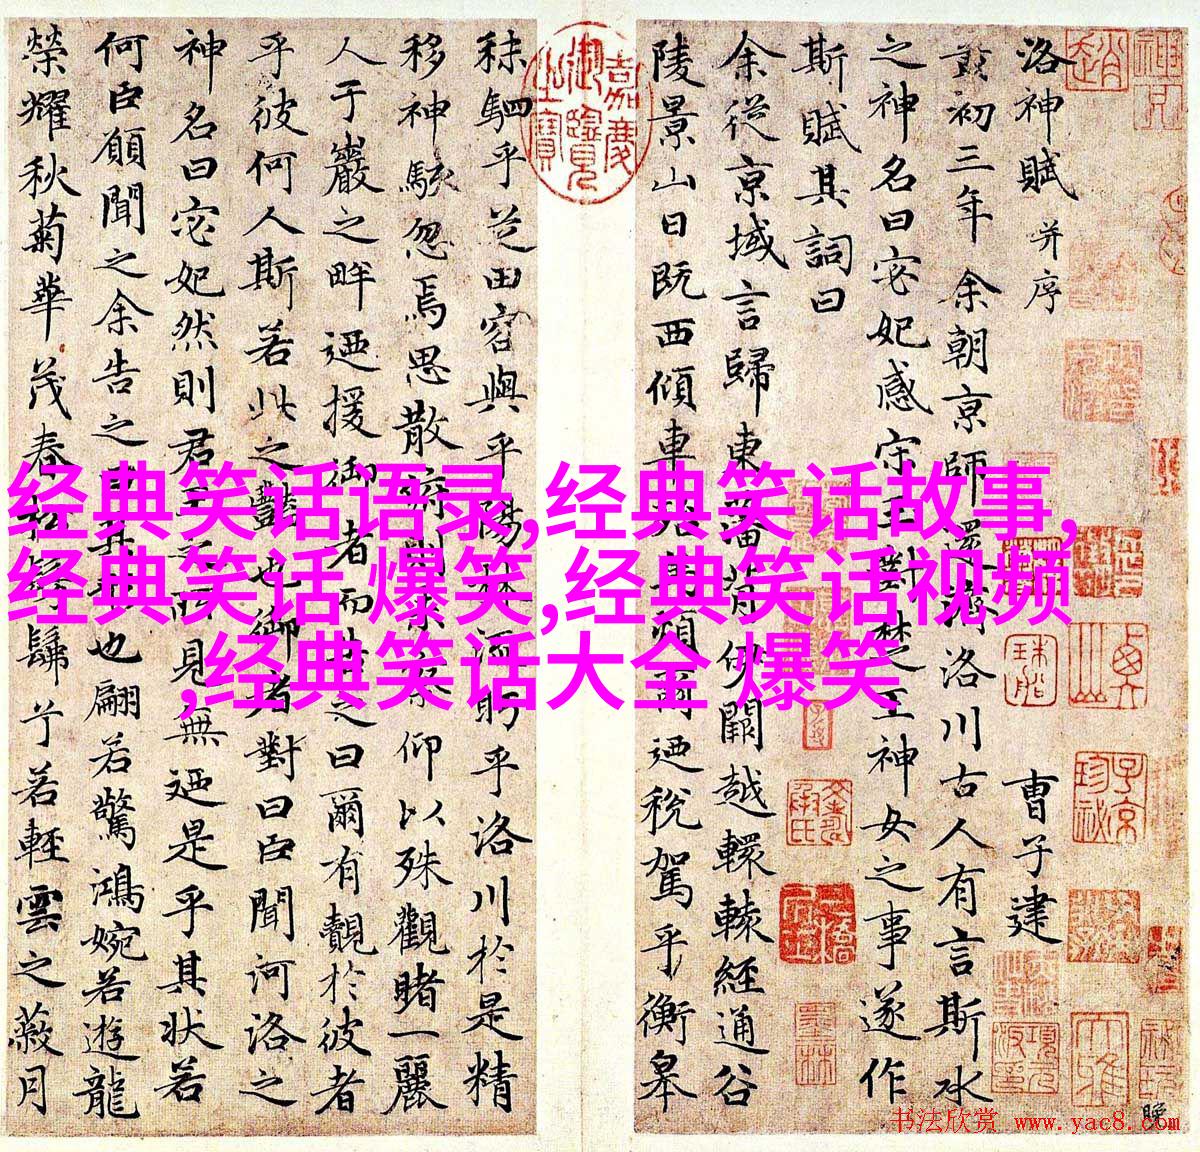 洛神賦 并序 曹子建
黃初三年余朝京師還濟洛川古人有言斯水
之神名曰宓妃感宋玉對楚王神女之事遂作
斯賦其詞曰
余從京域言歸東藩背伊闕越轘轅經通谷
陵景山日既西傾車殆馬煩爾迺稅駕乎蘅皋
嘉慶御覽之寶
秣駟乎芝田容與乎陽林流眄乎洛川於是精
移神駭忽焉思散俯則未察仰以殊觀睹一麗
人于巖之畔迺援御者而告之曰爾有覿於彼者
乎彼何人斯若此之豔也御者對曰臣聞河洛之
神名曰宓妃然則君王所見無迺是乎其狀若
何臣願聞之余告之曰其形也翩若驚鴻婉若遊龍
榮耀秋菊華茂春松髣髴兮若輕雲之蔽月
经典笑话语录,经典笑话故事,
经典笑话 爆笑,经典笑话视频
,经典笑话大全 爆笑
书法欣赏 www.yac8.com